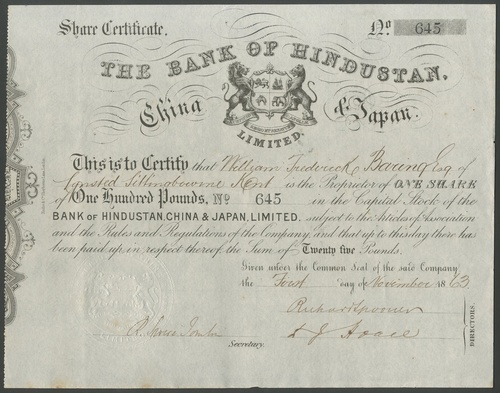 Share Certificate. No 645
THE BANK OF HINDUSTAN,
China & Japan.
LIMITED.
This is to Certify that William Frederick Baring Esq of
Lynsted Sittingbourne Kent is the Proprietor of ONE SHARE
of One Hundred Pounds, No 645 in the Capital Stock of the
BANK OF HINDUSTAN, CHINA & JAPAN, LIMITED, subject to the Articles of Association
and the Rules and Regulations of the Company, and that up to this day there has
been paid up in respect thereof, the Sum of Twenty five Pounds.
Given under the Common Seal of the said Company,
the First day of November 1863
Richard Spooner
Secretary.
DIRECTORS.